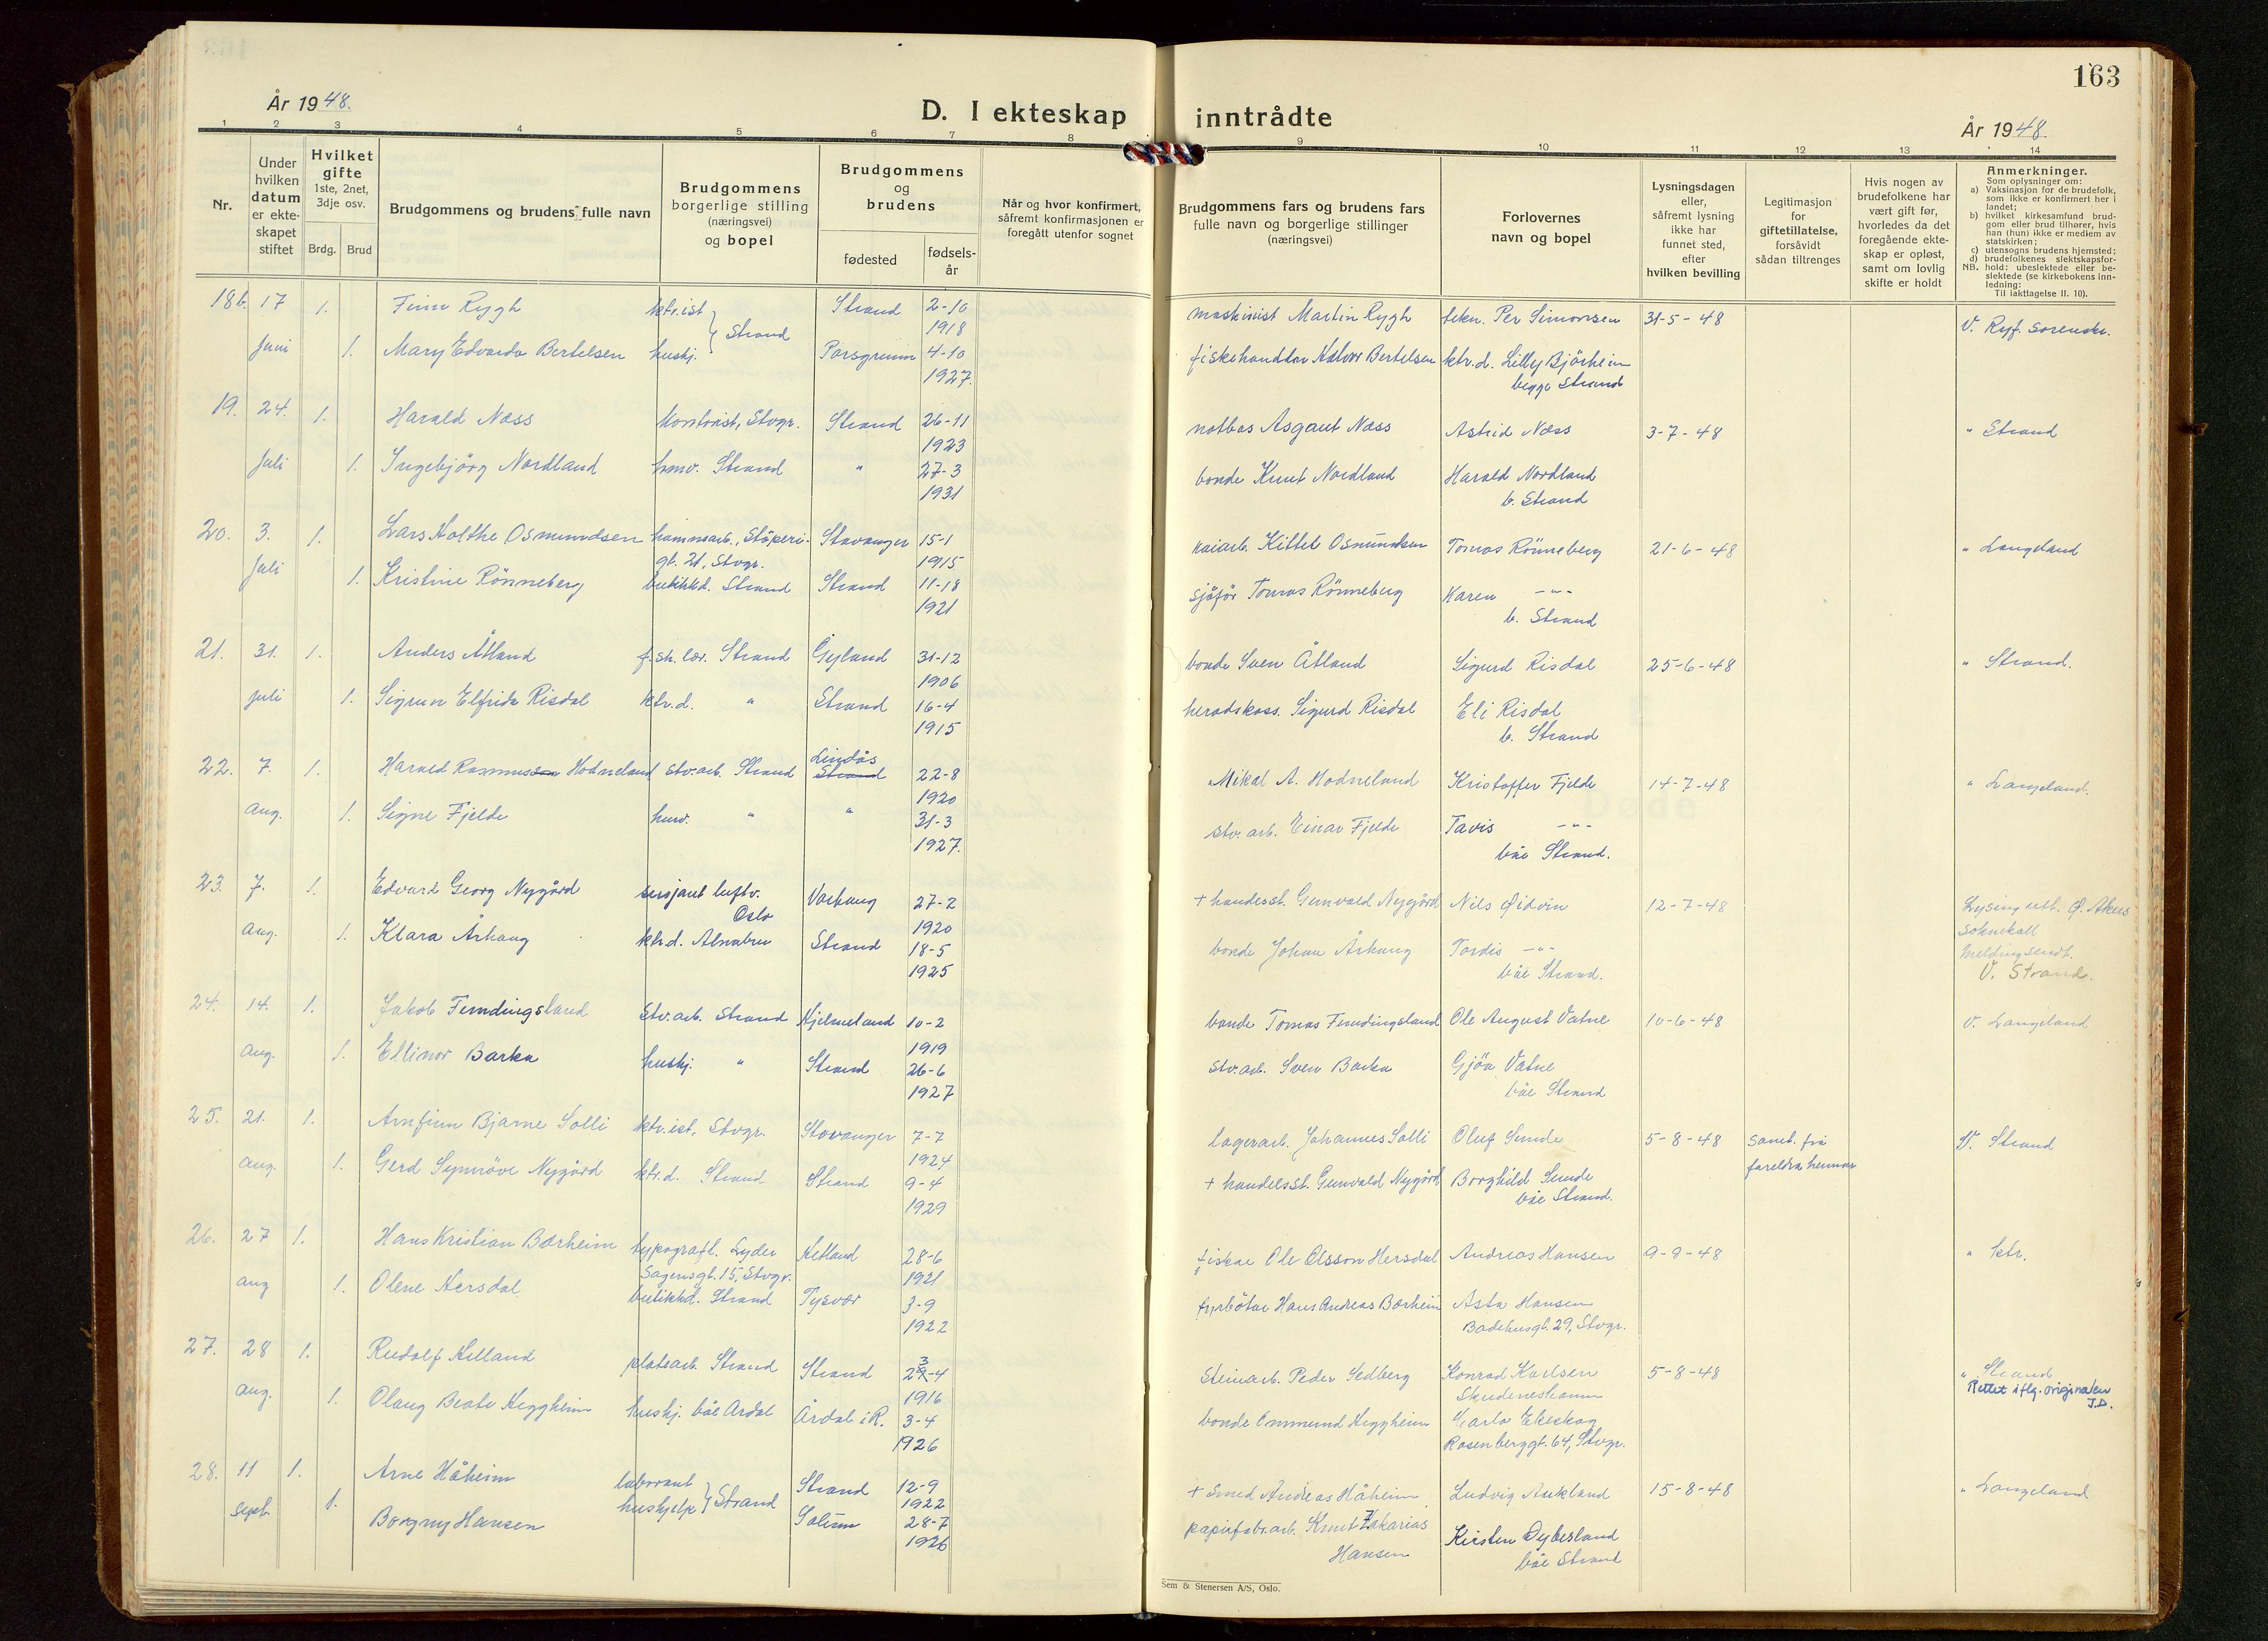 163
År 1948.
D. I ekteskap inntrådte
År 1948.
1 2 3 4 5 6 7 8 9 10 11 12 13 14
Nr.
Under hvilken datum er ekteskapet stiftet
Hvilket gifte
1ste, 2net, 3dje osv.
Brdg. Brud
Brudgommens og brudens fulle navn
Brudgommens borgerlige stilling (næringsvei) og bopel
Brudgommens og brudens
fødested
fødselsår
Når og hvor konfirmert, såfremt konfirmasjonen er foregått utenfor sognet
Brudgommens fars og brudens fars fulle navn og borgerlige stillinger (næringsvei)
Forlovernes navn og bopel
Lysningsdagen eller, såfremt lysning ikke har funnet sted, efter hvilken bevilling
Legitimasjon for giftetillatelse, forsåvidt sådan tiltrenges
Hvis nogen av brudefolkene har vært gift før, hvorledes da det foregående ekteskap er opløst, samt om lovlig skifte er holdt
Anmerkninger.
Som oplysninger om:
a) Vaksinasjon for de brudefolk, som ikke er konfirmert her i landet;
b) hvilket kirkesamfund brudgom eller brud tilhører, hvis han (hun) ikke er medlem av statskirken;
c) utensogns brudens hjemsted;
d) brudefolkenes slektskapsforhold: ubeslektede eller beslektede (se kirkebokens innledning:
NB. Til iakttagelse II. 10).
18b. 17 1. Finn Rygh ktr.ist Strand Strand 2-10 1918 maskinist Martin Rygh tekn. Per Simonsen 31-5-48 V. Ryf. Sorenskr.
Juni 1. Mary Edvarda Bertelsen huskj. Porsgrunn 4-10 1927. fiskehandlar Halvor Bertelsen ktr.d. Lilly Bjørheim
begge Strand
19. 24. 1. Harald Næss Kontorist, Stvgr. Strand 26-11 1923 notbas Asgaut Næss Astrid Næss 3-7-48 " Strand
Juli 1. Ingebjörg Nordland hmv. Strand " 27-3 1931 bonde Knut Nordland Harald Nordland
b. Strand
20. 3. 1. Lars Holthe Osmundsen hamnearb., Støperigt. 21, Stvgr. Stavanger 15-1 1915 kaiarb. Kittel Osmundsen Tomas Rönneberg 21-6-48 " Langeland
Juli 1. Kristine Rönneberg butikkd. Strand Strand 11-18 1921 sjåför Tomas Rönneberg Karen -"-
b. Strand
21. 31. 1. Anders Åtland f.sk.lær. Strand Gyland 31-12 1906 bonde Sven Åtland Sigurd Risdal 25-6-48 " Strand.
Juli 1. Sigrun Elfrida Risdal ktr.d. " Strand 16-4 1915 heradskass. Sigurd Risdal Eli Risdal
b. Strand
22. 7. 1. Harald Rasmussen Hodneland stv.arb. Strand Lindås Strand 22-8 1920 Mikal A. Hodneland Kristoffer Fjelde 14-7-48 " Langeland.
aug. 1. Signe Fjelde husv. " " 31-3 1927. stv.arb. Einar Fjelde Tavis -"-
båe Strand.
23. 7. 1. Edvard Georg Nygård sersjant luftv. Oslo Varhaug 27-2 1920 + handelsst. Gunvald Nygård Nils Øidvin 12-7-48 Lysing utst. Ø. Akers
aug. 1. Klara Århaug ktr.d. Alnabru Strand 18-5 1925 bonde Johan Århaug Tordis -"- soknekall
båe Strand. Melding sendt.
V. Strand.
24. 14. 1. Jakob Fundingsland Stv.arb. Strand Hjelmeland 10-2 1919 bonde Tomas Fundingsland Ole August Vatne 10-6-48 V. Langeland
aug. 1. Ellinor Barka huskj. " Strand 26-6 1927 Stv.arb. Sven Barka Gjöa Vatne
båe Strand
25. 21. 1. Arnfinn Bjarne Solli ktr.ist, Stvgr. Stavanger 7-7 1924 lagerarb. Johannes Solli Oluf Sunde 5-8-48 samt. frå foreldra hennar V. Strand
aug. 1. Gerd Synnöve Nygård ktr.d. Strand Strand 9-4 1929 + handelsst. Gunvald Nygård Borghild Sunde
båe Strand.
26. 27 1. Hans Kristian Bærheim typograf l. Lyder Sagensgt. 15, Stvgr. Hetland 28-6 1921 fiskar Ole Olsson Hersdal Andreas Hansen 9-8-48 " ktr.
aug 1. Olene Hersdal butikkd. Strand Tysvær 3-9 1922 fyrbötar Hans Andreas Bærheim Asta Hansen
Badehusgt. 29, Stvgr.
27. 28 1. Rudolf Helland platearb. Strand Strand 23-4 1916 Steinarb. Peder Sedberg Konrad Karlsen 5-8-48 " Strand
Skudeneshamn Rettet iflg. originalen J.D.
aug. 1. Olaug Beate Heggheim huskj. båe Årdal Årdal i R. 3-4 1926 bonde Ommund Heggheim Carla Ekeskog
Rosenberggt. 64, Stvgr.
28. 11 1. Arne Håheim laborant Strand Strand 12-9 1922 + smed Andreas Håheim Ludvig Aukland 15-8-48 " Langeland
sept. 1. Borgny Hansen huskjelp Solum 28-7 1926 papirfabr.arb. Knut Zakarias Hansen Kirsten Dybesland
båe Strand
Sem & Stenersen A/S, Oslo.